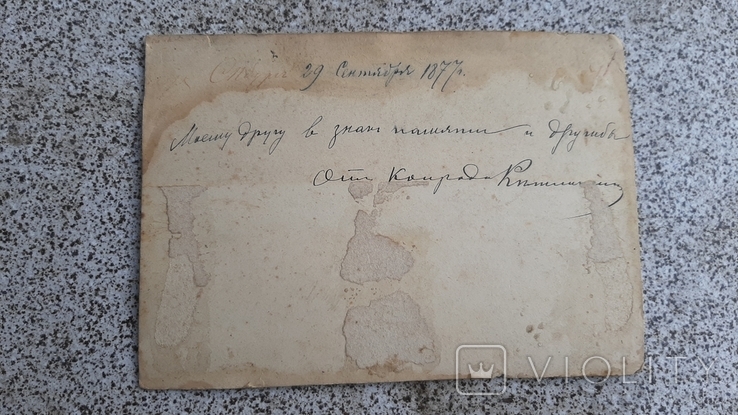 29 Сентября 1877г.
Моему другу в знак памяти и дружбы
От Конрада
VIOLITY